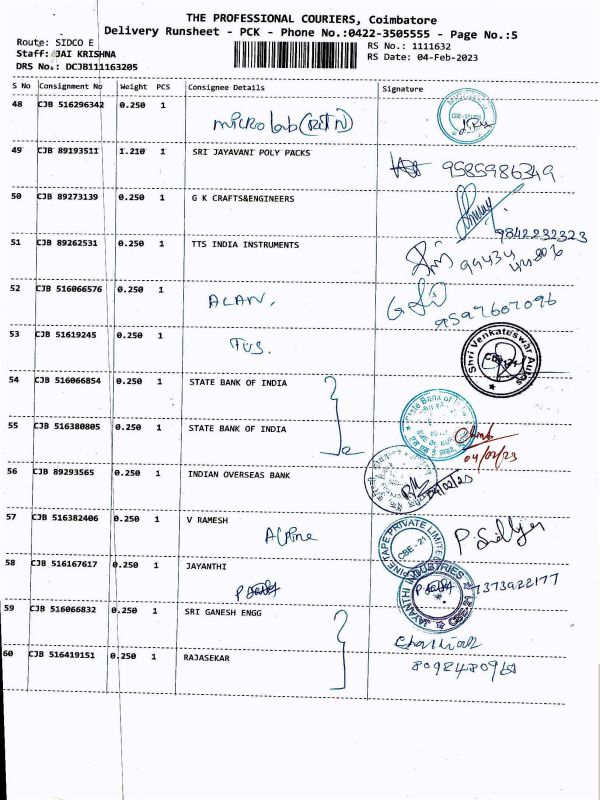 THE PROFESSIONAL COURIERS, Coimbatore
Delivery Runsheet - PCK - Phone No.:0422-3505555 - Page No.:5
Route: SIDCO E
Staff: JAI KRISHNA
DRS No.: DCJB111163205
RS No.: 1111632
RS Date: 04-Feb-2023
S No Consignment No Weight PCS Consignee Details Signature
48 CJB 516296342 0.250 1
micro lab
49 CJB 89193511 1.210 1 SRI JAYAVANI POLY PACKS
9585986349
50 CJB 89273139 0.250 1 G K CRAFTS&ENGINEERS
9842232323
51 CJB 89262531 0.250 1 TTS INDIA INSTRUMENTS
99434
52 CJB 516066576 0.250 1
ALAN.
9597607096
53 CJB 51619245 0.250 1
Shri Venkateswar Autos
54 CJB 516066854 0.250 1 STATE BANK OF INDIA
55 CJB 516380805 0.250 1 STATE BANK OF INDIA
State Bank of
04/02/23
56 CJB 89293565 0.250 1 INDIAN OVERSEAS BANK
04/02/23
57 CJB 516382406 0.250 1 V RAMESH
Alpine
PINE TAPE PRIVATE LIMITED
CBE - 21
58 CJB 516167617 0.250 1 JAYANTHI
JAYANTHI INDUSTRIES
CBE-21
7373922177
59 CJB 516066832 0.250 1 SRI GANESH ENGG
60 CJB 516419151 0.250 1 RAJASEKAR